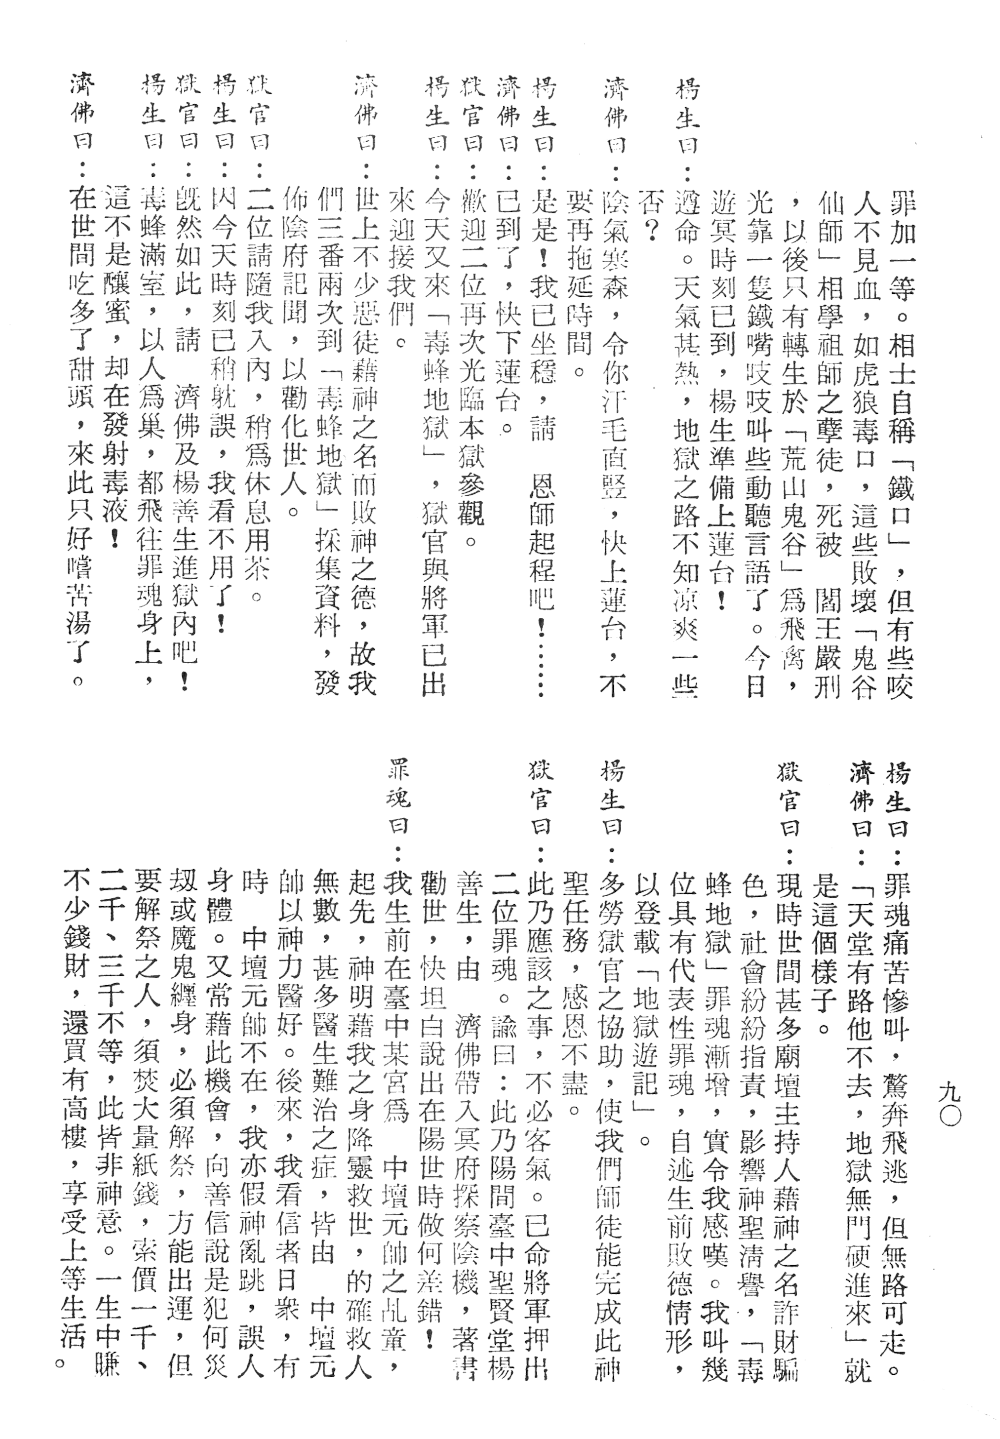 罪加一等。相士自稱「鐵口」，但有些咬
人不見血，如虎狼毒口，這些敗壞「鬼谷
仙師」相學祖師之孽徒，死被　閻王嚴刑
，以後只有轉生於「荒山鬼谷」爲飛禽，
光靠一隻鐵嘴吱吱叫些動聽言語了。今日
遊冥時刻已到，楊生準備上蓮台！
楊生曰：遵命。天氣甚熱，地獄之路不知凉爽一些
否？
濟佛曰：陰氣寒森，令你汗毛直豎，快上蓮台，不
要再拖延時間。
楊生曰：是是！我已坐穩，請　恩師起程吧！……
濟佛曰：已到了，快下蓮台。
獄官曰：歡迎二位再次光臨本獄參觀。
楊生曰：今天又來「毒蜂地獄」，獄官與將軍已出
來迎接我們。
濟佛曰：世上不少惡徒藉神之名而敗神之德，故我
們三番兩次到「毒蜂地獄」採集資料，發
佈陰府記聞，以勸化世人。
獄官曰：二位請隨我入內，稍爲休息用茶。
楊生曰：因今天時刻已稍躭誤，我看不用了！
獄官曰：旣然如此，請　濟佛及楊善生進獄內吧！
楊生曰：毒蜂滿室，以人爲巢，都飛往罪魂身上，
這不是釀蜜，却在發射毒液！
濟佛曰：在世間吃多了甜頭，來此只好嚐苦湯了。
九〇
楊生曰：罪魂痛苦慘叫，驚奔飛逃，但無路可走。
濟佛曰：「天堂有路他不去，地獄無門硬進來」就
是這個樣子。
獄官曰：現時世間甚多廟壇主持人藉神之名詐財騙
色，社會紛紛指責，影響神聖淸譽，「毒
蜂地獄」罪魂漸增，實令我感嘆。我叫幾
位具有代表性罪魂，自述生前敗德情形，
以登載「地獄遊記」。
楊生曰：多勞獄官之協助，使我們師徒能完成此神
聖任務，感恩不盡。
獄官曰：此乃應該之事，不必客氣。已命將軍押出
二位罪魂。諭曰：此乃陽間臺中聖賢堂楊
善生，由　濟佛帶入冥府探察陰機，著書
勸世，快坦白說出在陽世時做何差錯！
罪魂曰：我生前在臺中某宮爲　中壇元帥之乩童，
起先，神明藉我之身降靈救世，的確救人
無數，甚多醫生難治之症，皆由　中壇元
帥以神力醫好。後來，我看信者日衆，有
時　中壇元帥不在，我亦假神亂跳，誤人
身體。又常藉此機會，向善信說是犯何災
刼或魔鬼纏身，必須解祭，方能出運，但
要解祭之人，須焚大量紙錢，索價一千、
二千、三千不等，此皆非神意。一生中賺
不少錢財，還買有高樓，享受上等生活。